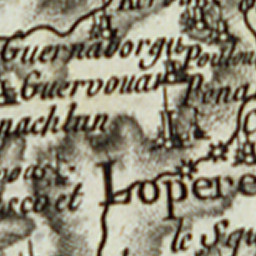 Guernaborgu
Poulou
Guervouar
Pena
nachlun
Lopere
ccoet
le Squ